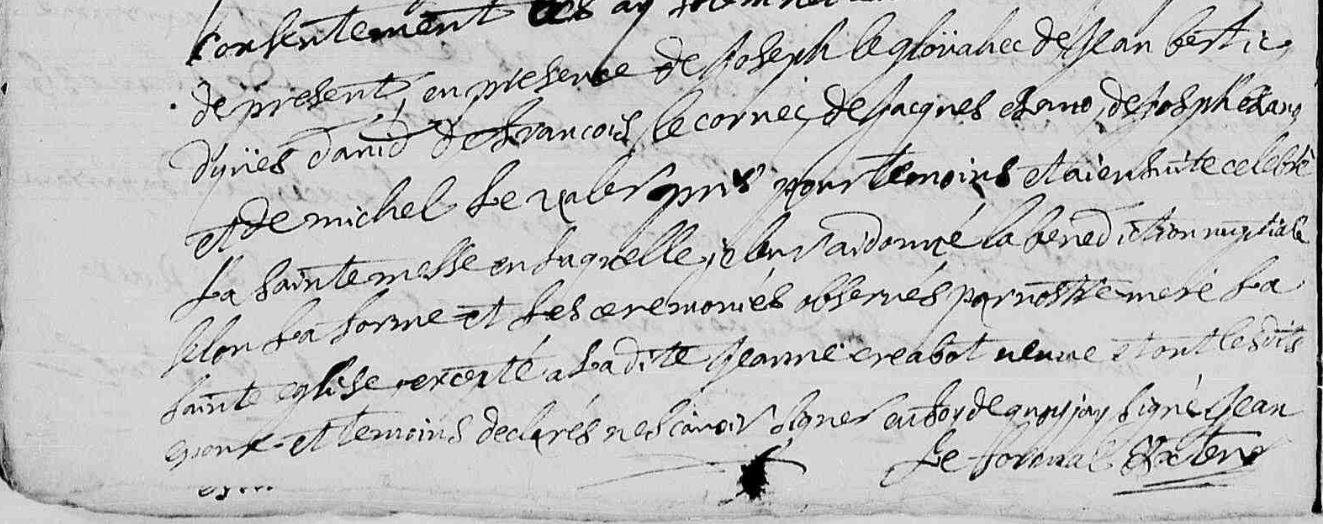 consentement les ay
de present, en presence de Joseph le glouahec de Jean bertic
d'yues david de francois le cornec, de Jacques ezano, de Joseph ezano
et de michel le pris pour temoins et ai ensuite celebré
La sainte messe en laquelle je leur ai donné la benediction nuptiale
selon la forme et les ceremonies observés par nostre mere La
sainte eglise, excepté a la dite Jeanne creabot veuve et ont lesdits
epoux et temoins declarés ne scavoir signer en foy de quoy jay signé Jean
Le